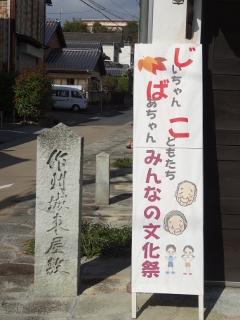 じいちゃん
ばあちゃん
こどもたち
みんなの文化祭
作州城東屋敷